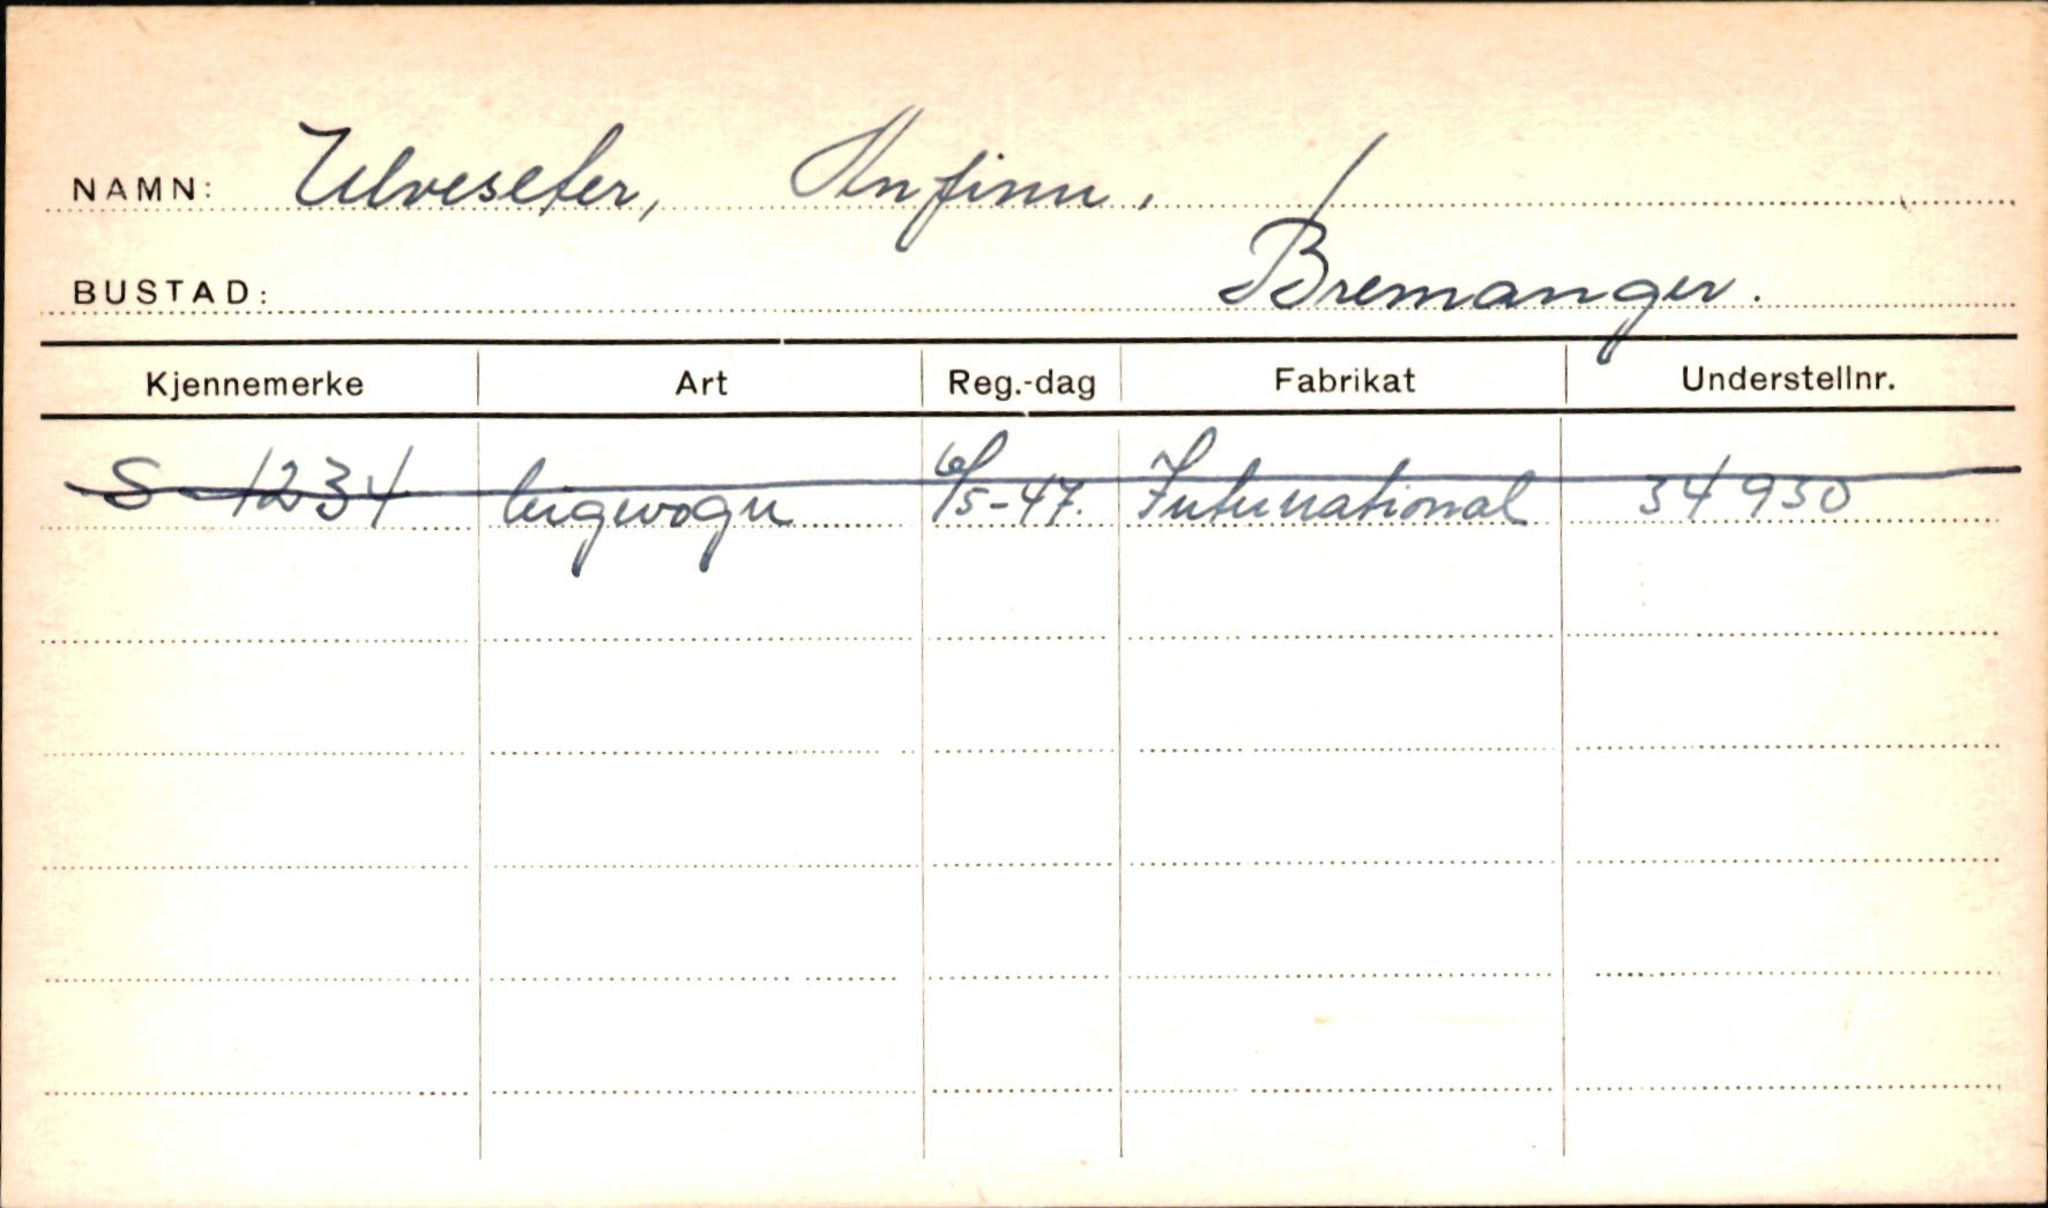 NAMN: Ulveseter, Anfinn.
BUSTAD: Bremanger.
Kjennemerke Art Reg.-dag Fabrikat Understellnr.
S-1234 leigevogn 6/5-47. International 34930